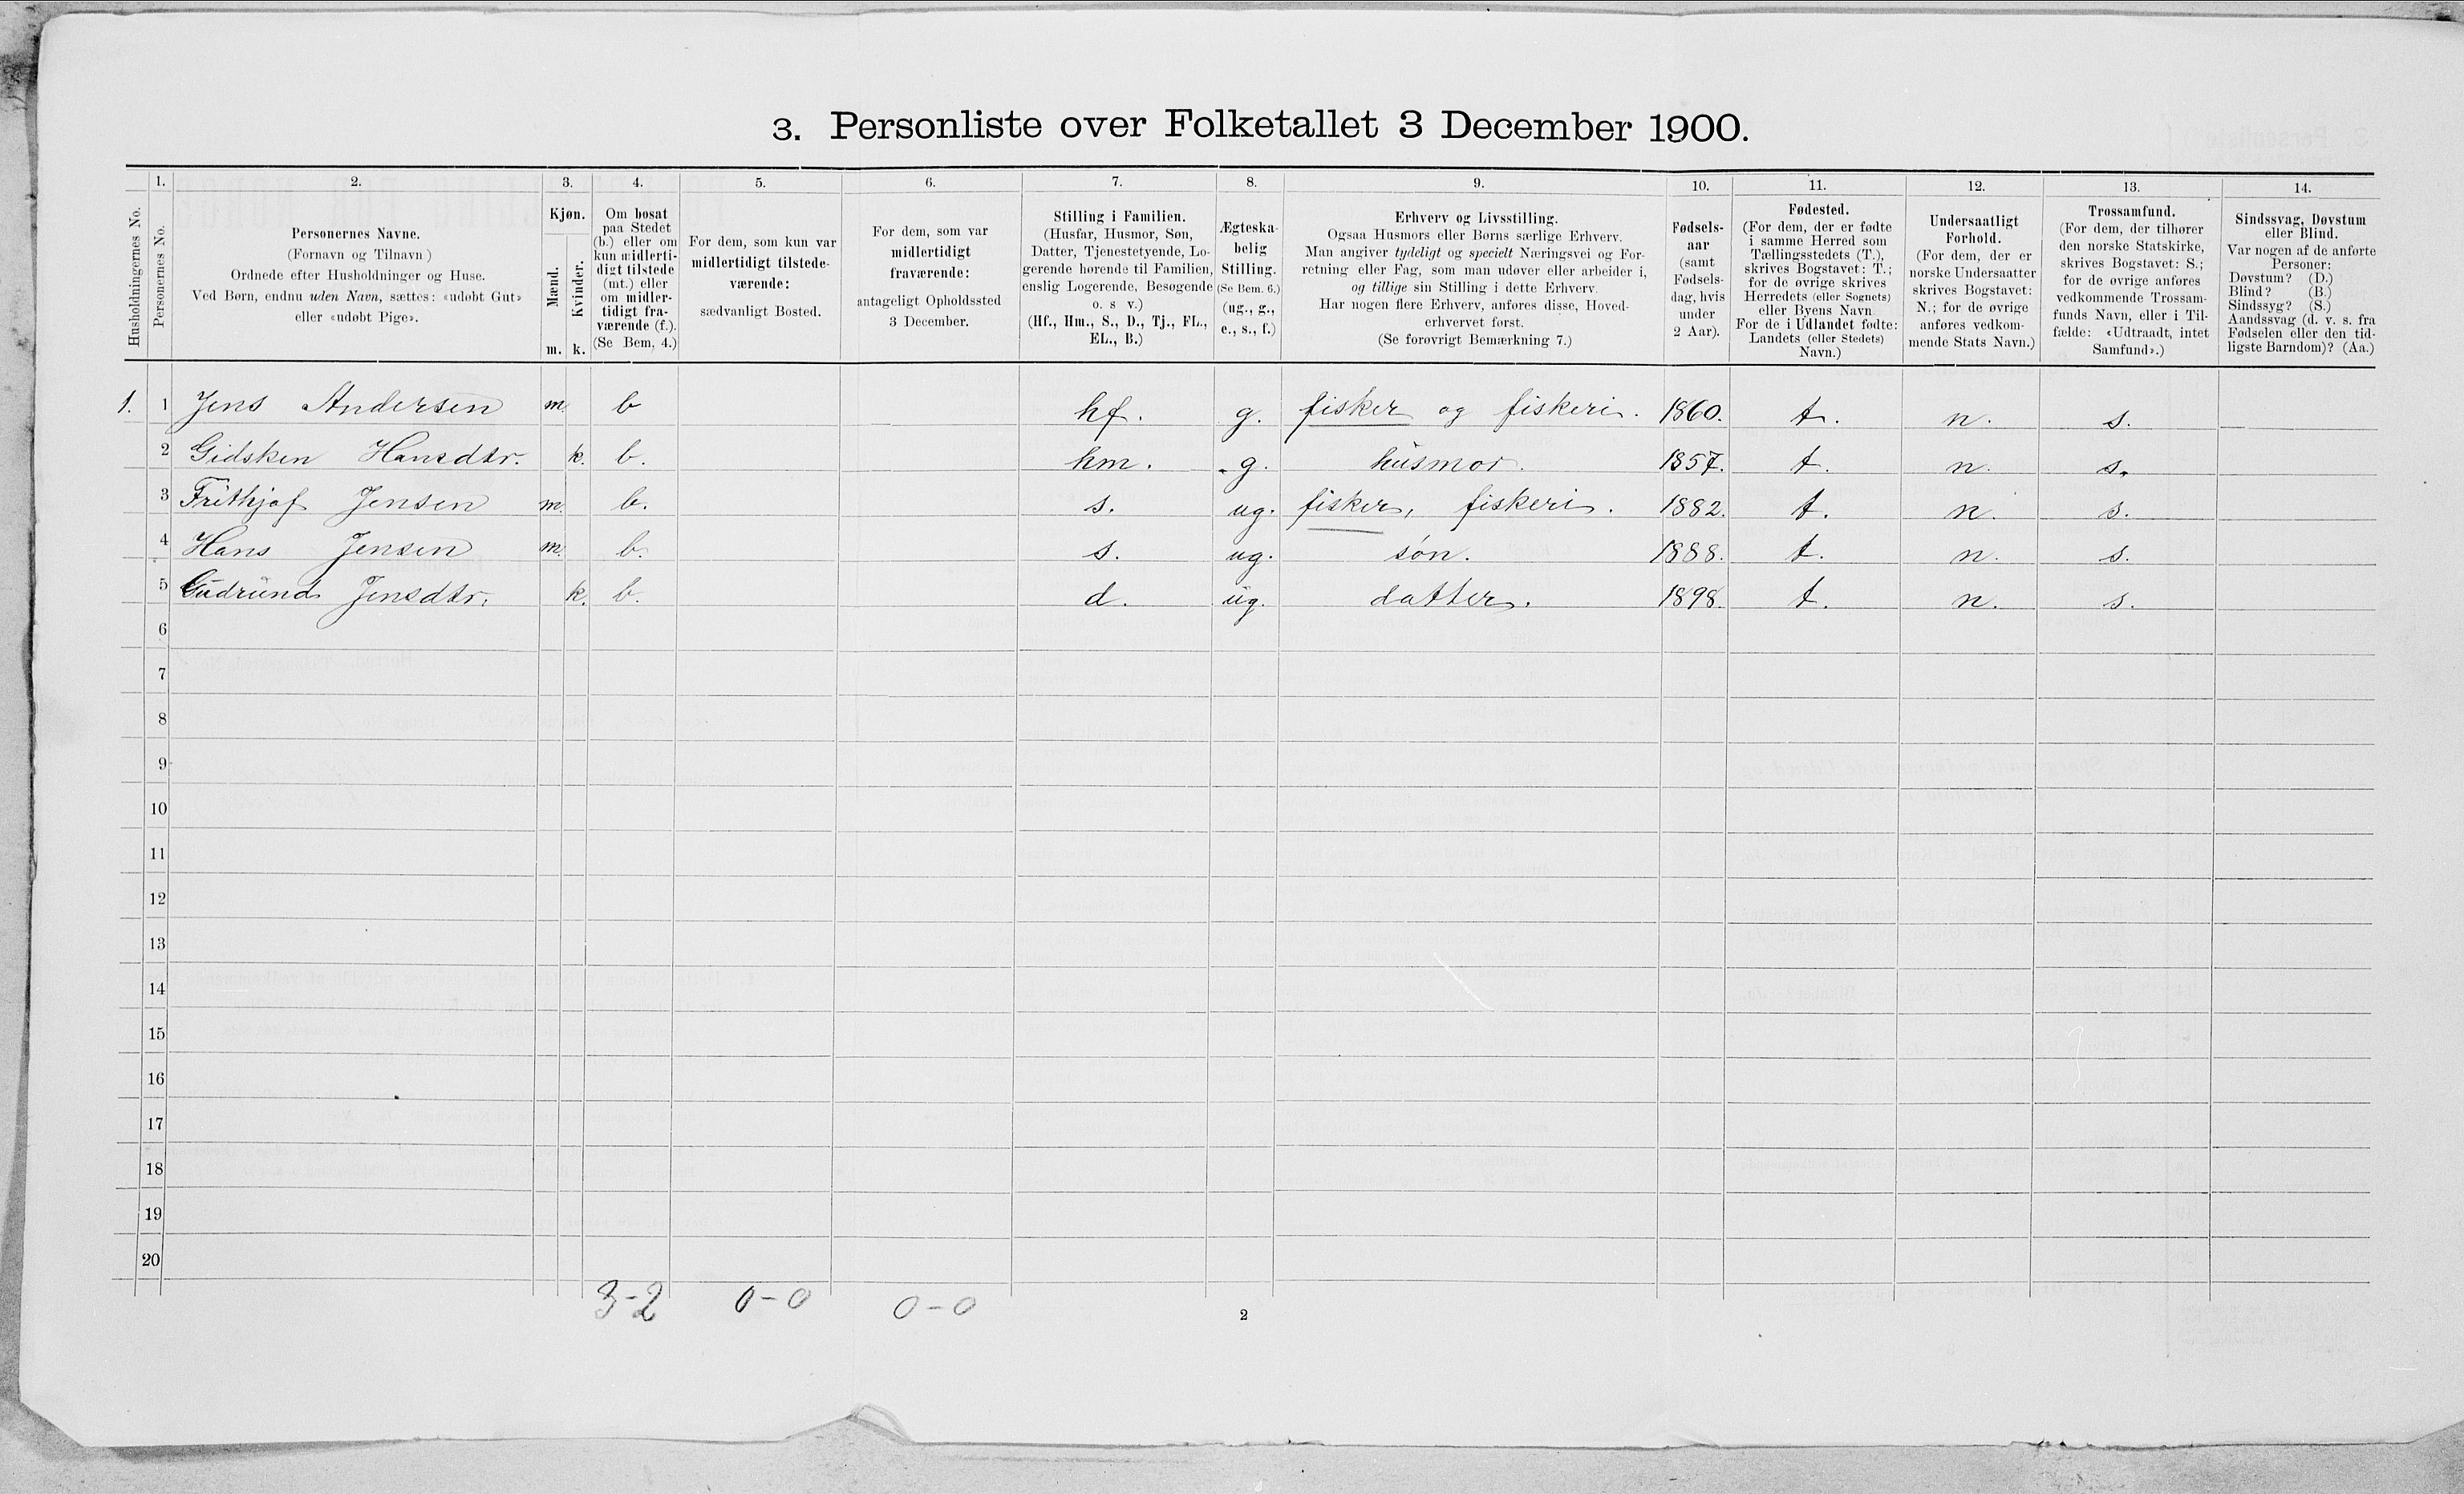 3. Personliste over Folketallet 3 December 1900.
Husholdningernes No.
1.
Personernes No.
2.
Personernes Navne.
(Fornavn og Tilnavn)
Ordnede efter Husholdninger og Huse.
Ved Børn, endnu uden Navn, sættes: «udøbt Gut»
eller «udøbt Pige».
3.
Kjøn.
Mænd.
Kvinder.
m. k.
4.
Om bosat
paa Stedet
(b.) eller om
kun midlerti-
digt tilstede
(mt.) eller
om midler-
tidigt fra-
værende (f.).
(Se Bem. 4.)
5.
For dem, som kun var
midlertidigt tilstede-
værende:
sædvanligt Bosted.
6.
For dem, som var
midlertidigt
fraværende:
antageligt Opholdssted
3 December.
7.
Stilling i Familien.
(Husfar, Husmor, Søn,
Datter, Tjenestetyende, Lo-
gerende hørende til Familien,
enslig Logerende, Besøgende
o. s v.)
(Hf., Hm., S., D., Tj., FL.,
EL., B.)
8.
Ægteska-
belig
Stilling.
(Se Bem. 6.)
(ug., g.,
e., s., f.)
9.
Erhverv og Livsstilling.
Ogsaa Husmors eller Børns særlige Erhverv.
Man angiver tydeligt og specielt Næringsvei og For-
retning eller Fag, som man udøver eller arbeider i,
og tillige sin Stilling i dette Erhverv.
Har nogen flere Erhverv, anføres disse, Hoved-
erhvervet først.
(Se forøvrigt Bemærkning 7.)
10.
Fødsels-
aar
(samt
Fødsels-
dag, hvis
under
2 Aar).
11.
Fødested.
(For dem, der er fødte
i samme Herred som
Tællingsstedets (T.),
skrives Bogstavet: T.;
for de øvrige skrives
Herredets (eller Sognets)
eller Byens Navn
For de i Udlandet fødte:
Landets (eller Stedets)
Navn.)
12.
Undersaatligt
Forhold.
(For dem, der er
norske Undersaatter
skrives Bogstavet:
N.; for de øvrige
anføres vedkom-
mende Stats Navn.)
13.
Trossamfund.
(For dem, der tilhører
den norske Statskirke,
skrives Bogstavet: S.;
for de øvrige anføres
vedkommende Trossam-
funds Navn, eller i Til-
fælde: «Udtraadt, intet
Samfund».)
14.
Sindssvag, Døvstum
eller Blind.
Var nogen af de anførte
Personer:
Døvstum? (D.)
Blind? (B.)
Sindssyg? (S.)
Aandssvag (d. v. s. fra
Fødselen eller den tid-
ligste Barndom)? (Aa.)
1. 1 Jens Andersen m. b hf. g. fisker og fiskeri. 1860. t. n. s.
2 Gidsken Hansdtr. k. b. hm. g. husmor. 1857. t. n. s.
3 Frithjof Jensen m. b. s. ug. fisker, fiskeri. 1882. t. n. s.
4 Hans Jensen m. b. s. ug. søn. 1888. t. n. s.
5 Gudrund Jensdtr. k. b. d. ug. datter. 1898. t. n. s.
6
7
8
9
10
11
12
13
14
15
16
17
18
19
20
3-2 0-0 0-0
2